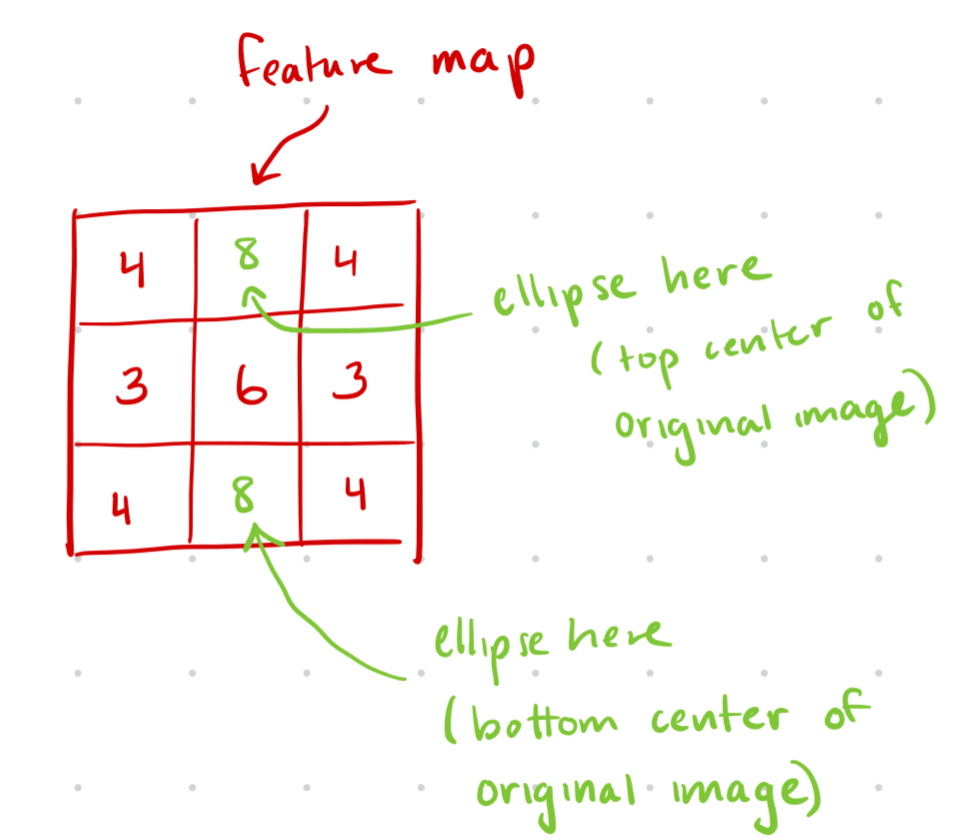 feature map
4 8 4
3 6 3
4 8 4
ellipse here
(top center of
original image)
ellipse here
(bottom center of
original image)